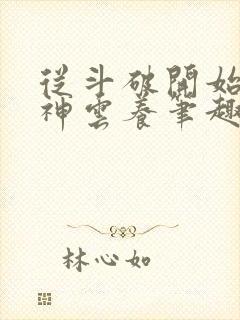 從斗破開始
神雲養筆趣
林心如